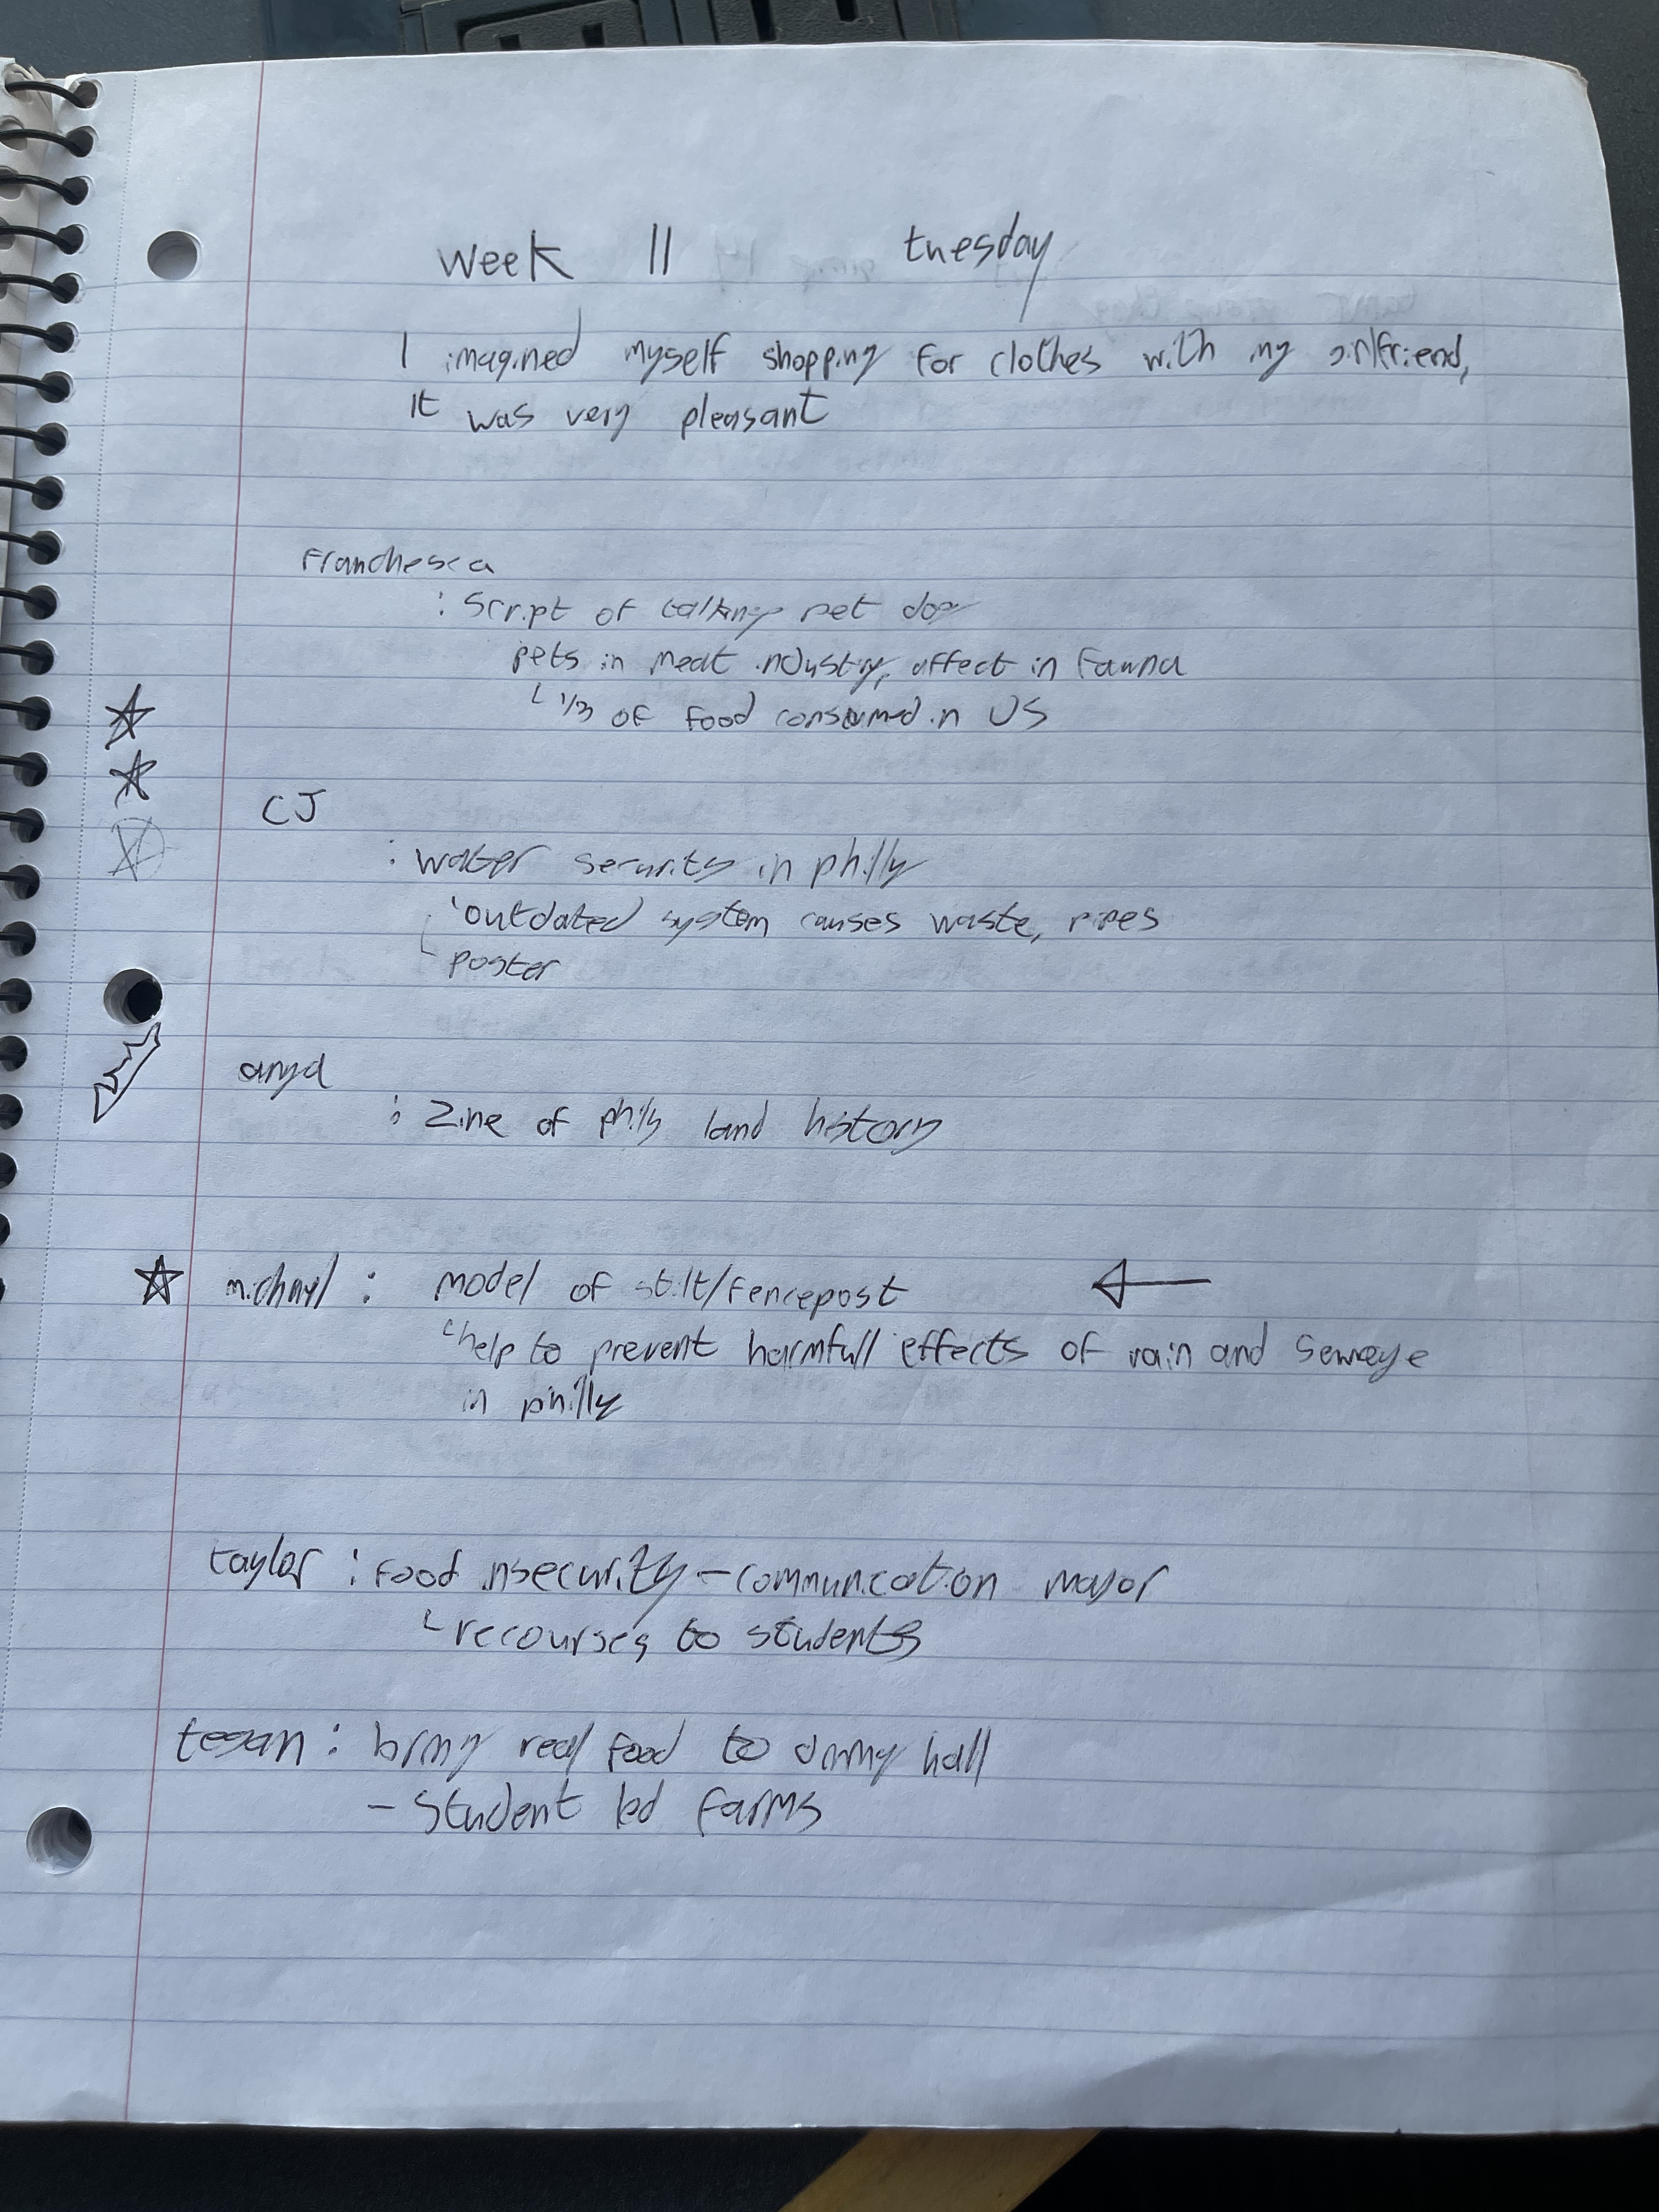 week 11 tuesday
I imagined myself shopping for clothes with my girlfriend,
It was very pleasant
Franchesca
: Script of talking pet dog
pets in meat industry, affect in Fauna
1/3 of food consumed in US
CJ
: water security in philly
outdated system causes waste, pipes
poster
anya
: Zine of philly land history
michayl : model of stilt/fencepost
help to prevent harmfull effects of rain and sewage
in philly
taylor : food insecurity - communication major
recourses to students
tegan : bring real food to dining hall
- student led farms